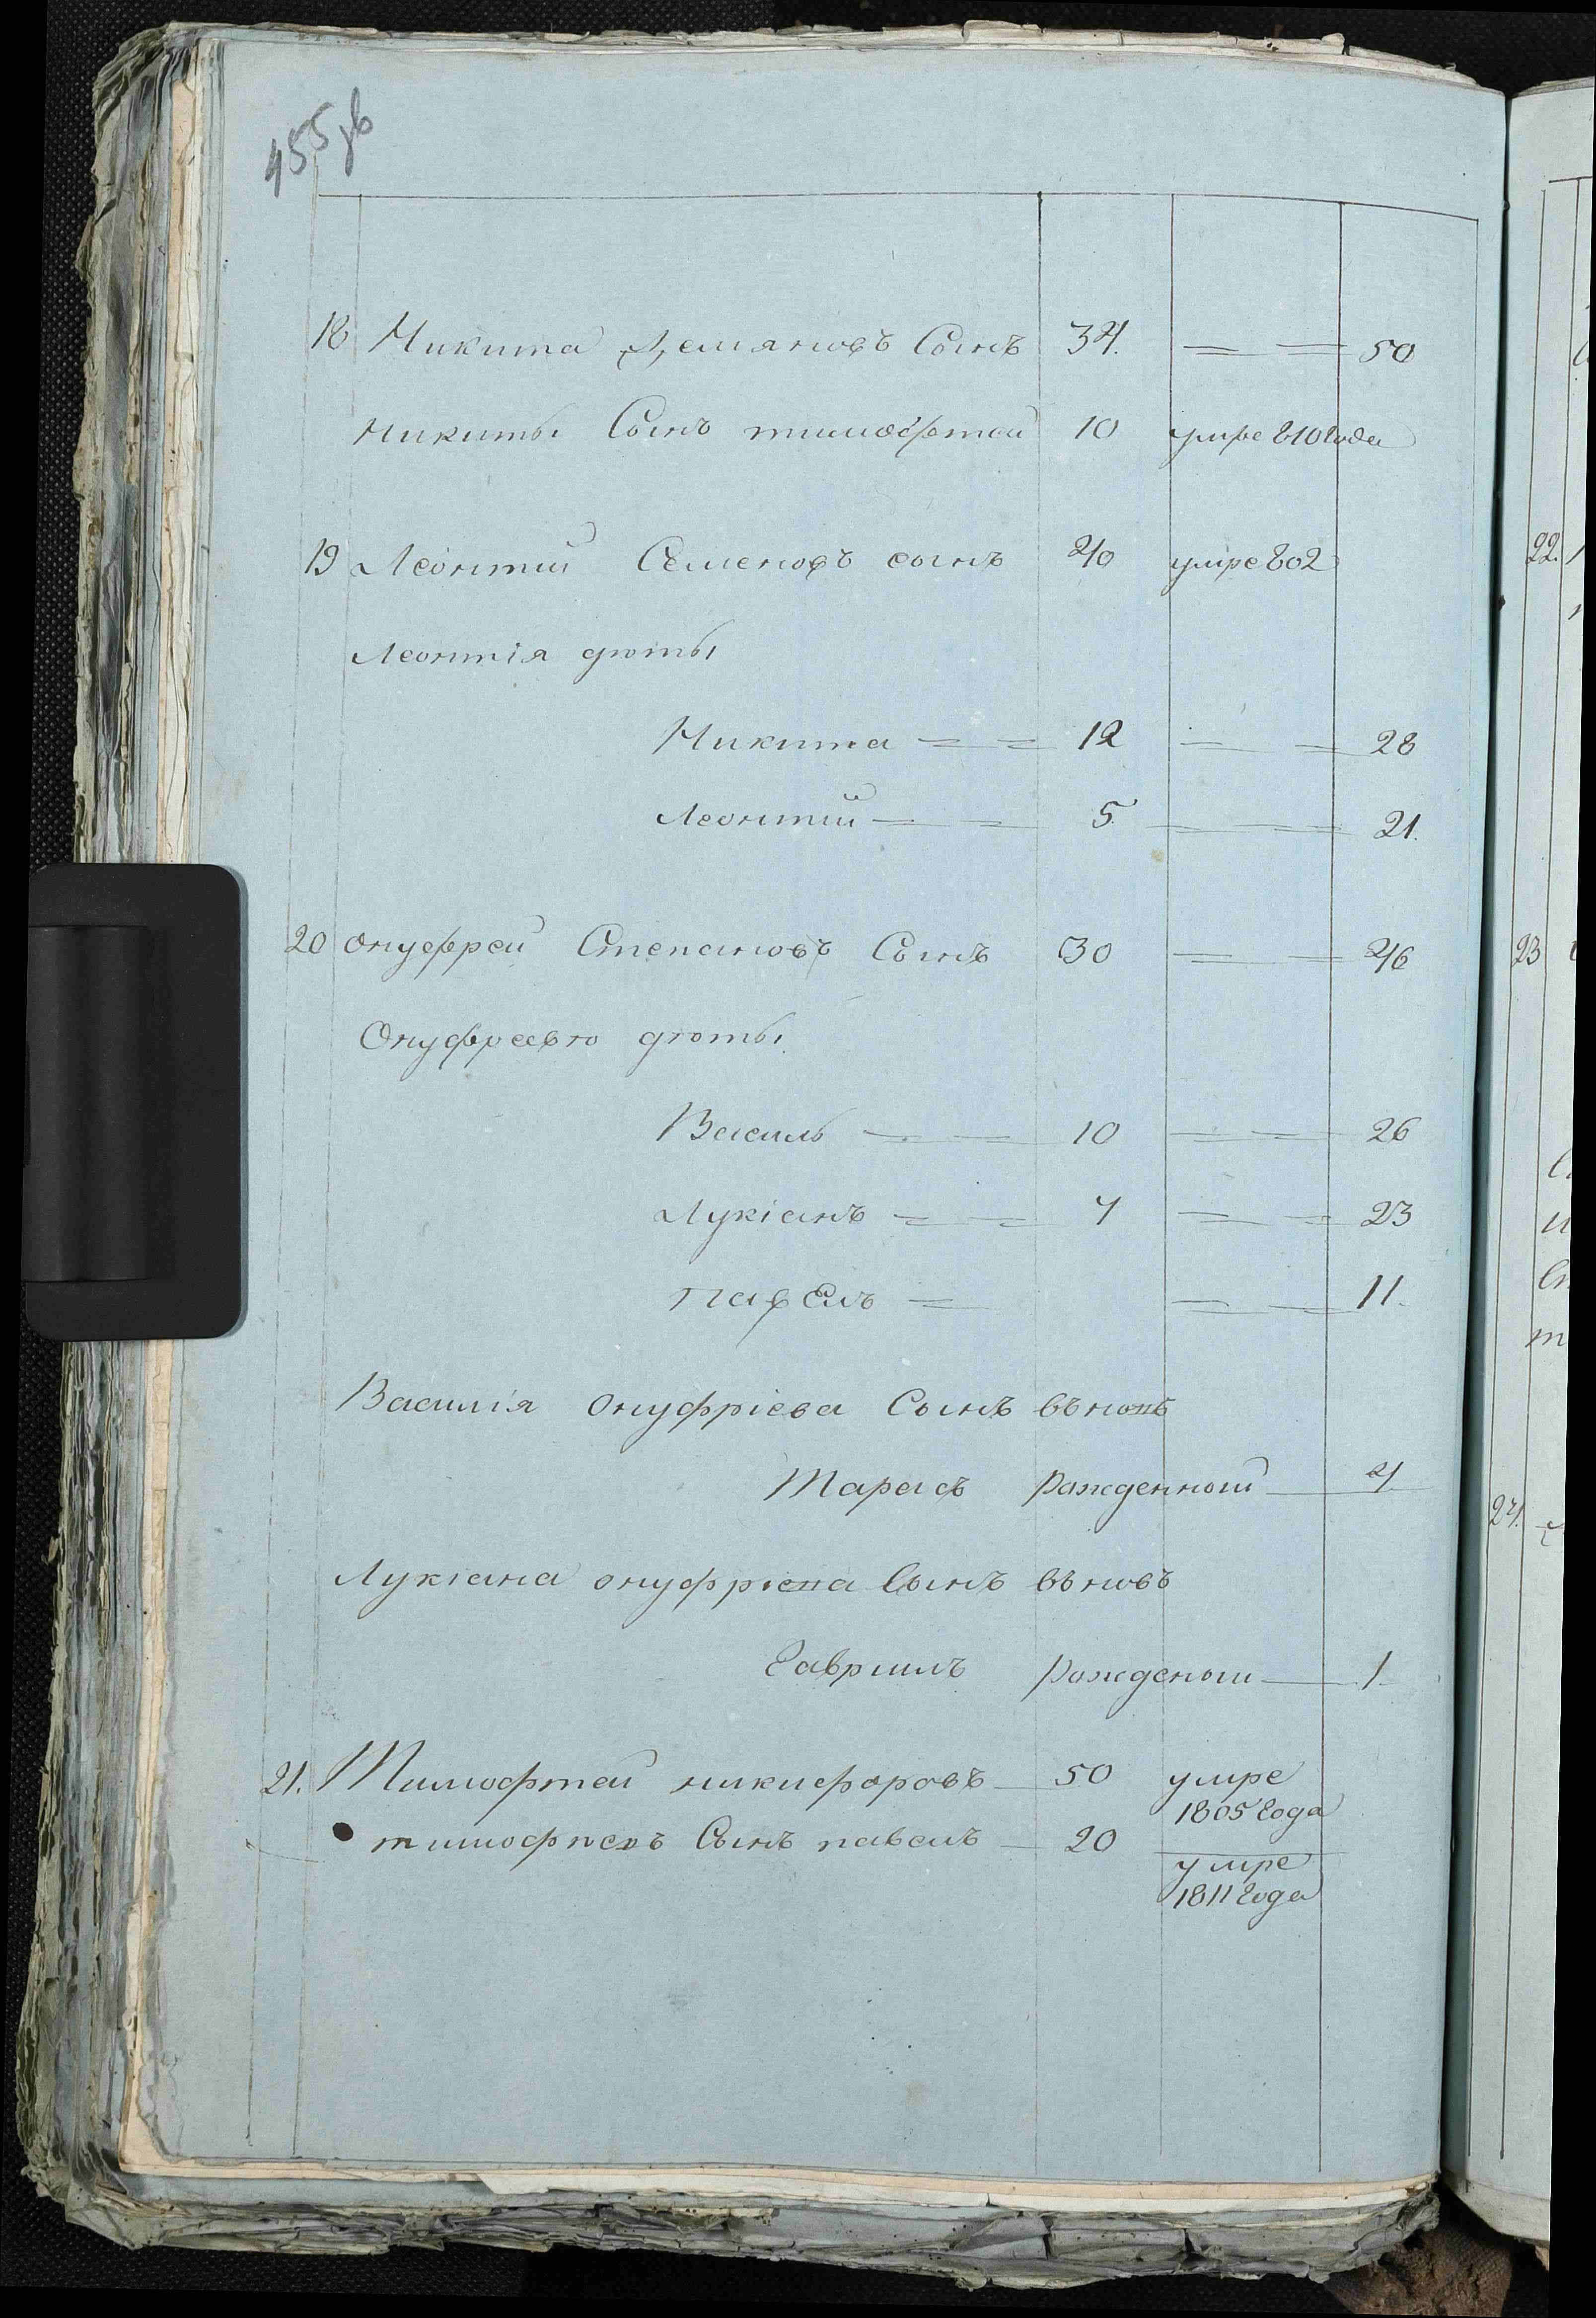 455 зв
18 Никита Демяновъ Сынъ 34. 50
Никиты Сынъ тимофтей 10 умре 810 года
19 Леонтий Семеновъ сынъ 40 умре 802
Леонтія дюты
Никита 12 28
Леонтий 5 21.
20 Онуфрей Степановъ Сынъ 30 46
Онуфреевю дюты
Василь 10 26
Лукіанъ 7 23
павелъ 11.
Василія Онуфріева Сынъ вновь
Тарасъ рожденной 4
Лукіана онуфріева Сынъ вьновъ
Гавриилъ рожденои 1
21. Тимофтей никифоровъ 50 умре
1805 года
тимофпевъ Сынъ павелъ 20
умре
1811 года
22.
23
24.